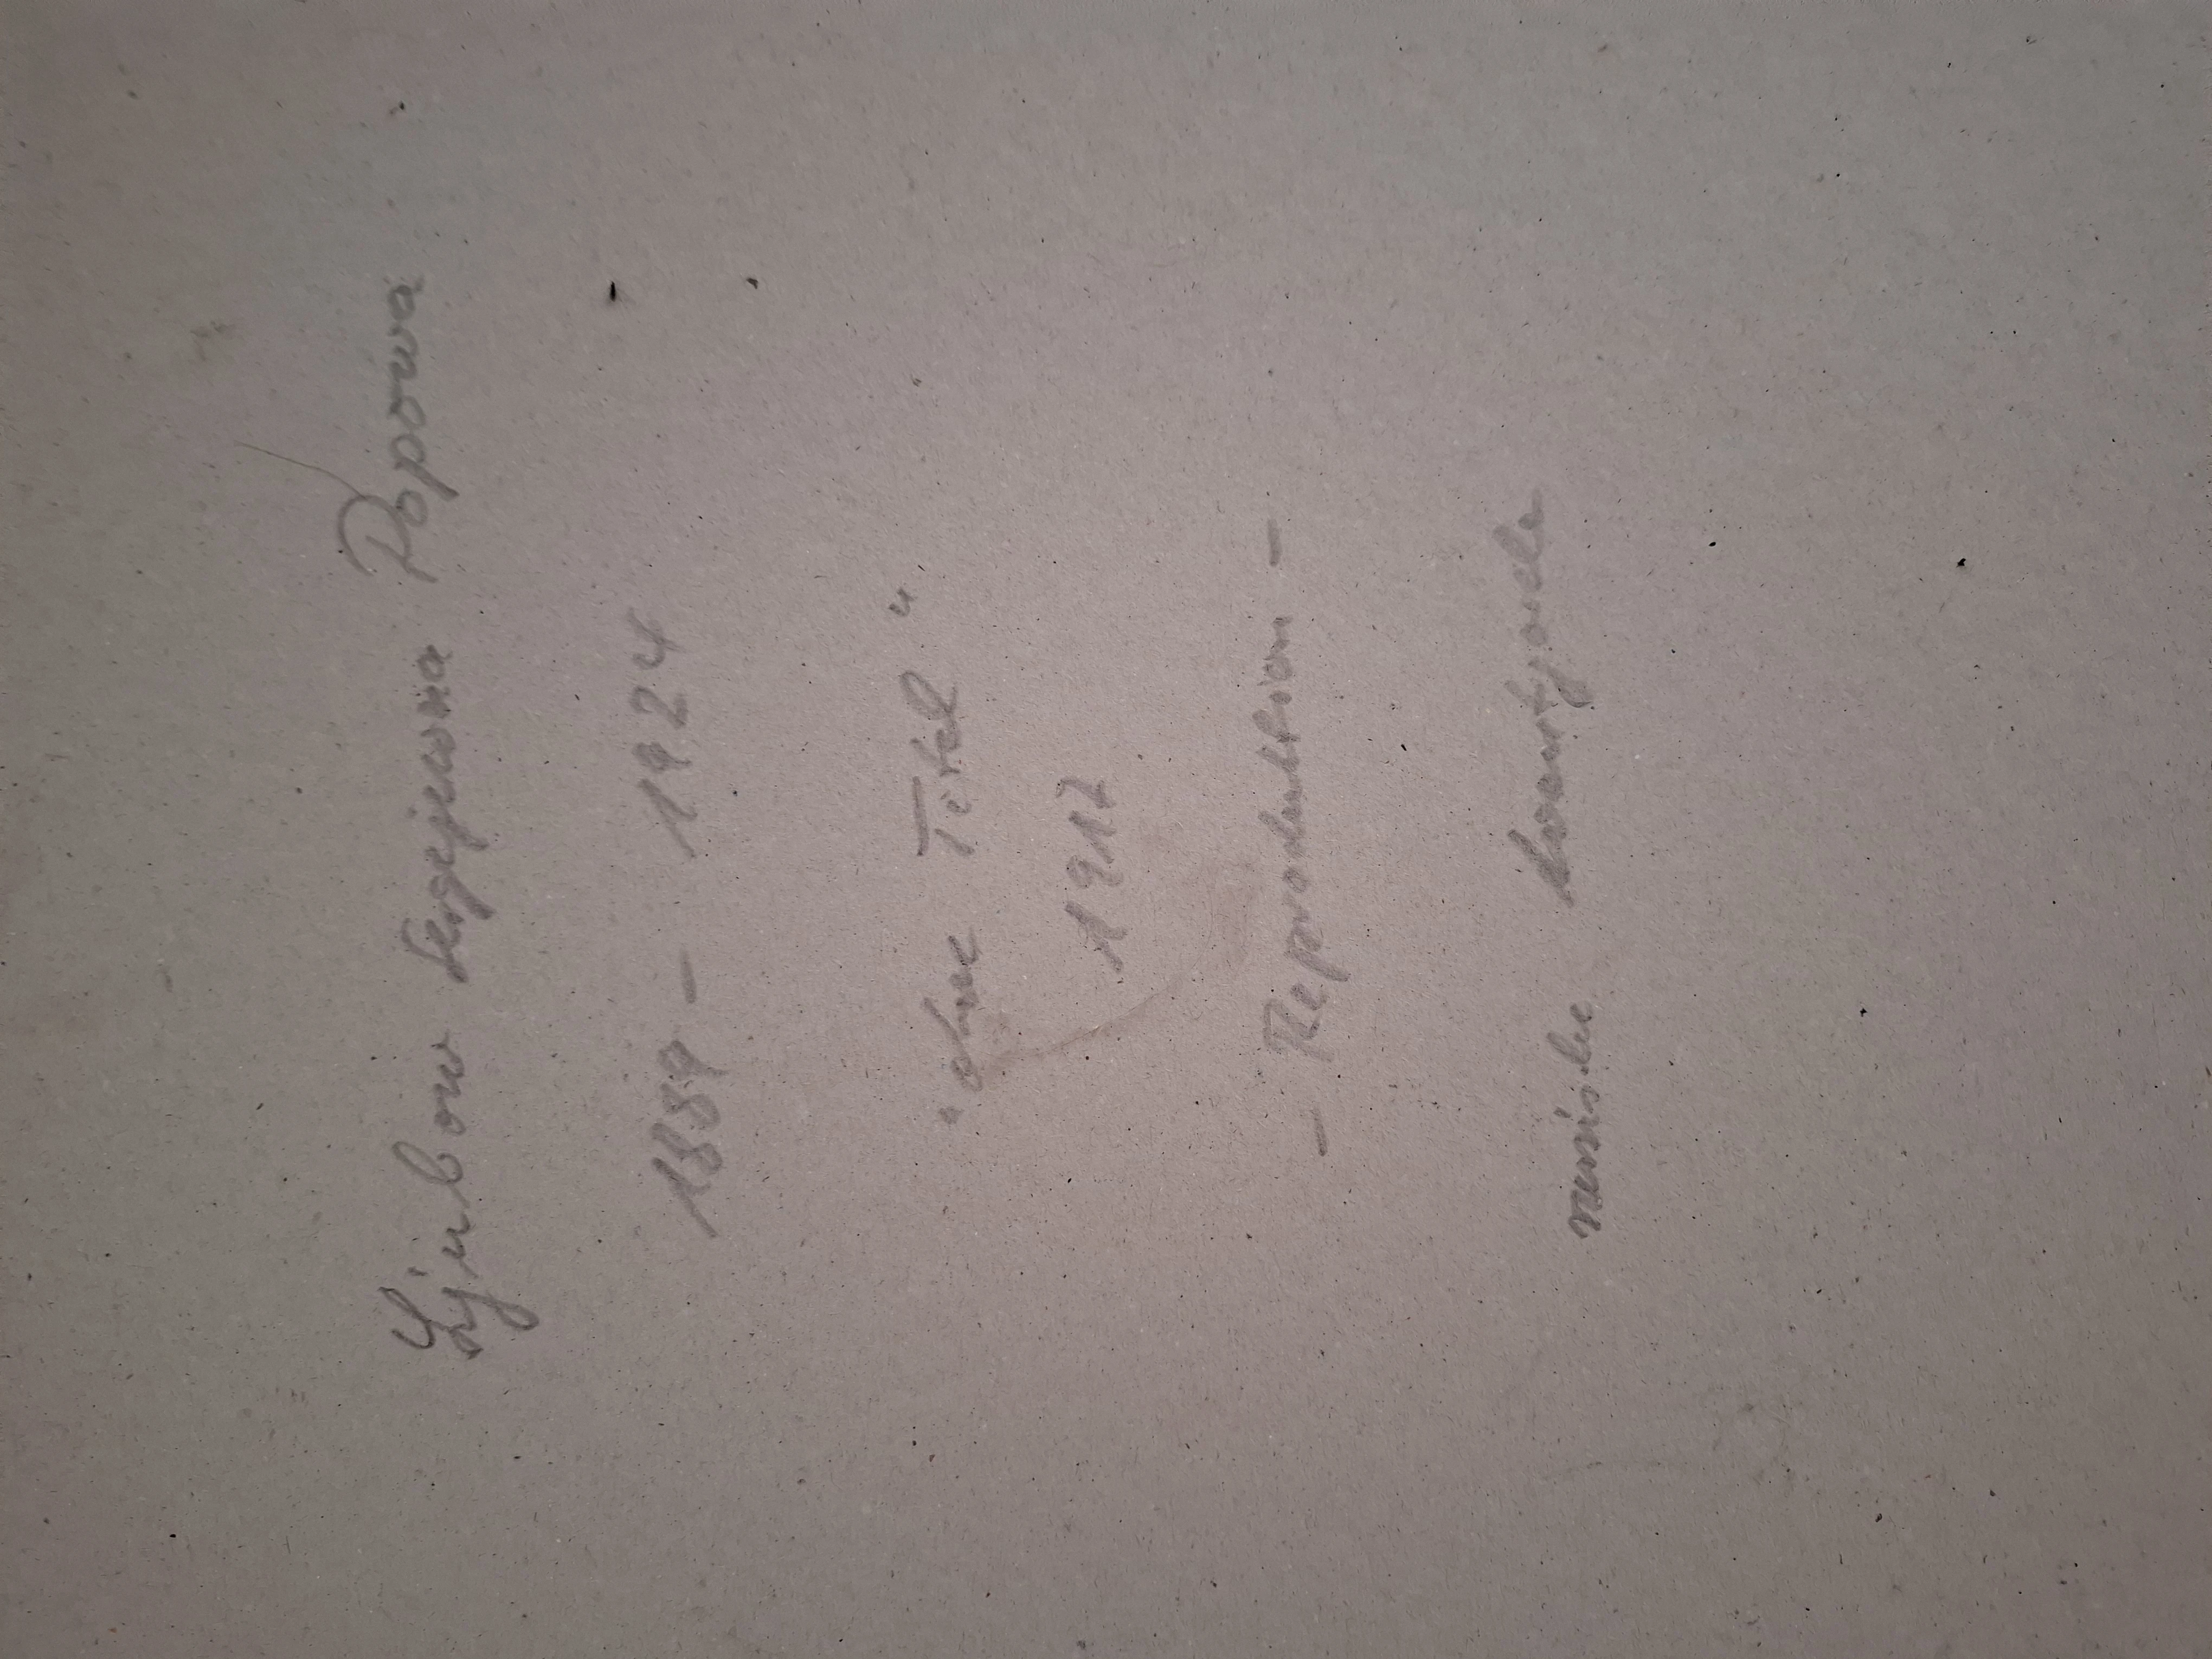 Ljubow Sergejewna Popowa
1889 - 1924
"ohne Titel"
1917
- Reproduktion -
russische Avantgarde